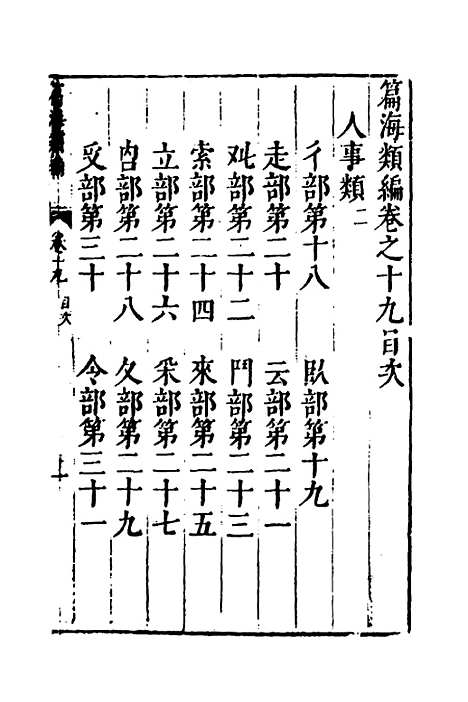 篇海類編卷之十九目次
人事類二
彳部第十八
臥部第十九
走部第二十
云部第二十一
丮部第二十二
鬥部第二十三
索部第二十四
來部第二十五
立部第二十六
釆部第二十七
㕯部第二十八
夂部第二十九
㸒部第三十
令部第三十一
篇海類編
卷十九
目次